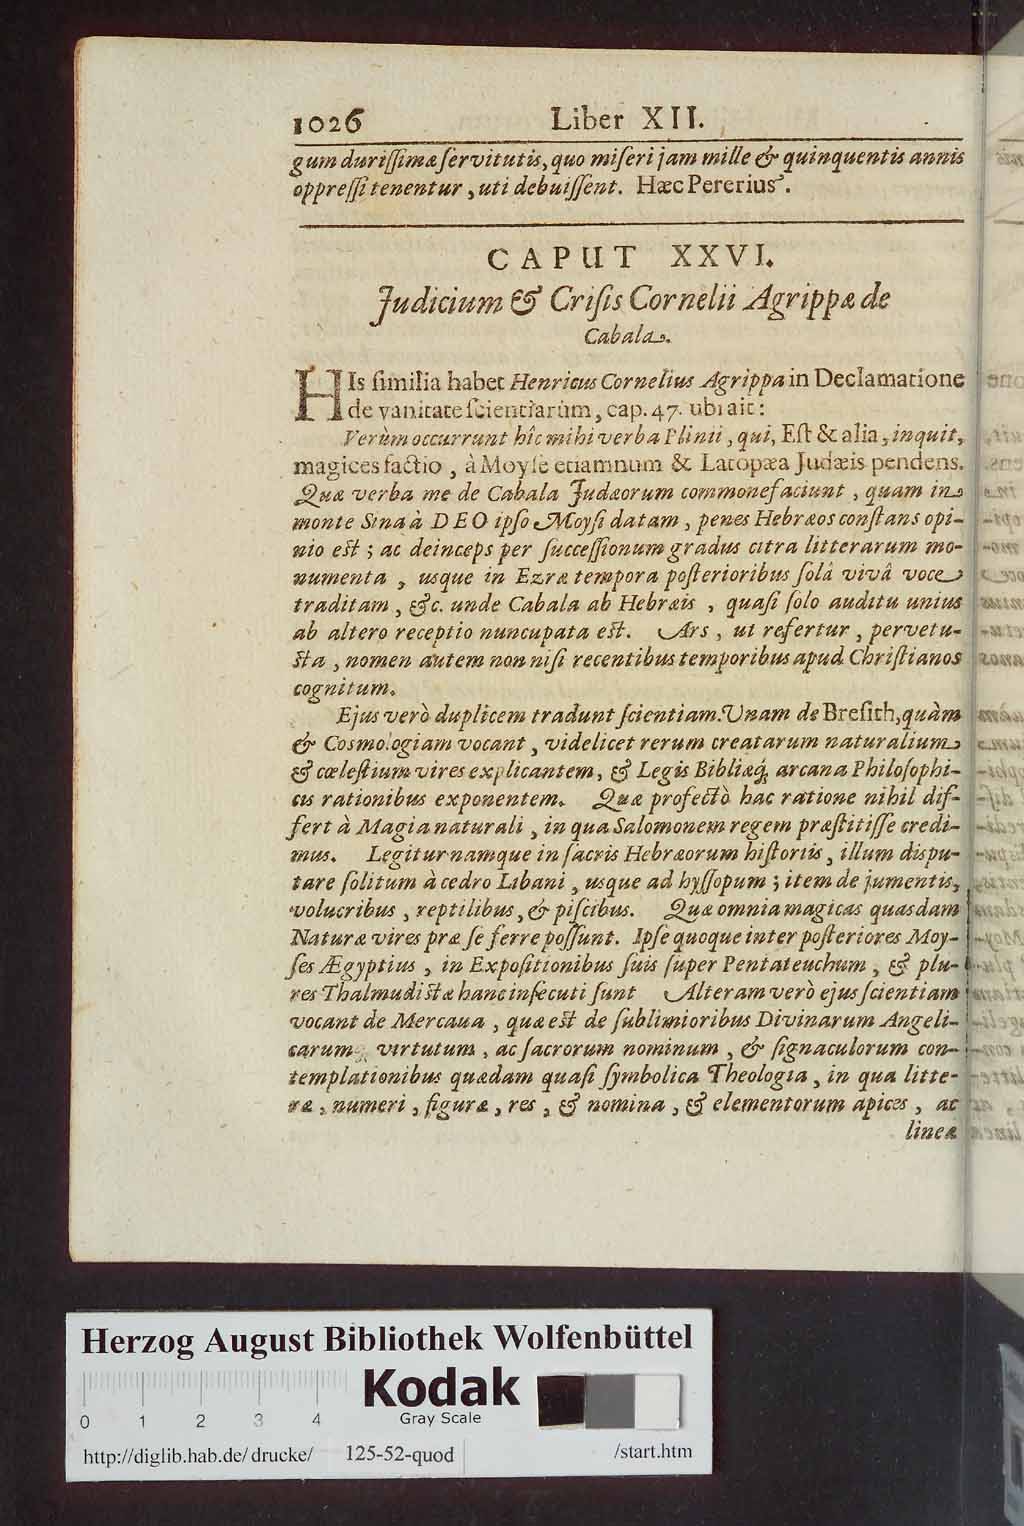 1026 Liber XII.
gum durißimæ ſervitutis, quo miſeri jam mille & quinquentis annis
oppreßi tenentur, uti debuiſſent. Hæc Pererius.
CAPUT XXVI.
Judicium & Criſis Cornelii Agrippæ de
Cabala.
HIs ſimilia habet Henricus Cornelius Agrippa in Declamatione
de vanitate ſcientiarùm, cap. 47. ubi ait:
Verùm occurrunt hîc mihi verba Plinii, qui, Eſt & alia, inquit,
magices factio, à Moyſe etiamnum & Latopæa Judæis pendens.
Quæ verba me de Cabala Judæorum commonefaciunt, quam in
monte Sina à DEO ipſo Moyſi datam, penes Hebræos conſtans opi-
nio eſt; ac deinceps per ſucceſſionum gradus citra litterarum mo-
numenta, usque in Ezræ tempora poſterioribus ſolâ vivâ voce
traditam, &c. unde Cabala ab Hebræis, quaſi ſolo auditu unius
ab altero receptio nuncupata eſt. Ars, ut refertur, pervetu-
ſta, nomen autem non niſi recentibus temporibus apud Chriſtianos
cognitum.
Ejus verò duplicem tradunt ſcientiam. Unam de Breſith, quàm
& Cosmologiam vocant, videlicet rerum creatarum naturalium
& cœleſtium vires explicantem, & Legis Bibliæq́; arcana Philoſophi-
cis rationibus exponentem. Quæ profectò hac ratione nihil dif-
fert à Magia naturali, in qua Salomonem regem præſtitiſſe credi-
mus. Legitur namque in ſacris Hebræorum hiſtoriis, illum dispu-
tare ſolitum à cedro Libani, usque ad hyſſopum; item de jumentis,
volucribus, reptilibus, & piſcibus. Quæ omnia magicas quasdam
Naturæ vires præ ſe ferre poſſunt. Ipſe quoque inter poſteriores Moy-
ſes Ægyptius, in Expoſitionibus ſuis ſuper Pentateuchum, & plu-
res Thalmudiſtæ hanc inſecuti ſunt Alteram verò ejus ſcientiam
vocant de Mercaua, quæ eſt de ſublimioribus Divinarum Angeli-
carumq; virtutum, ac ſacrorum nominum, & ſignaculorum con-
templationibus quædam quaſi ſymbolica Theologia, in qua litte-
ræ, numeri, figuræ, res, & nomina, & elementorum apices, ac
lineæ
Herzog August Bibliothek Wolfenbüttel
Kodak
Gray Scale
0 1 2 3 4
http://diglib.hab.de/drucke/ 125-52-quod /start.htm